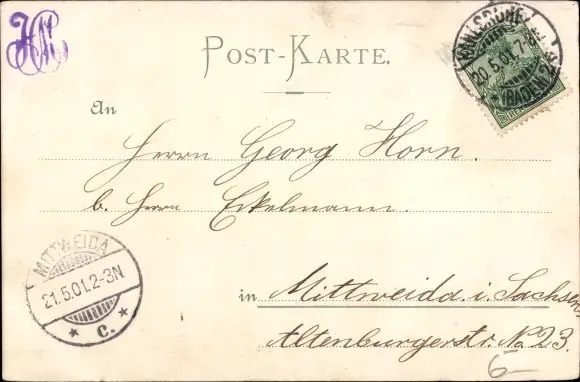 HH
POST-KARTE.
KARLSRUHE
20.5.01.7-8
(BADEN)
An
Herrn Georg Horn.
b. Herrn Eckelmann.
MITTWEIDA
21.5.01.2-3N.
C.
in Mittweida i. Sachsen,
Altenburgerstr. No 23.
6-